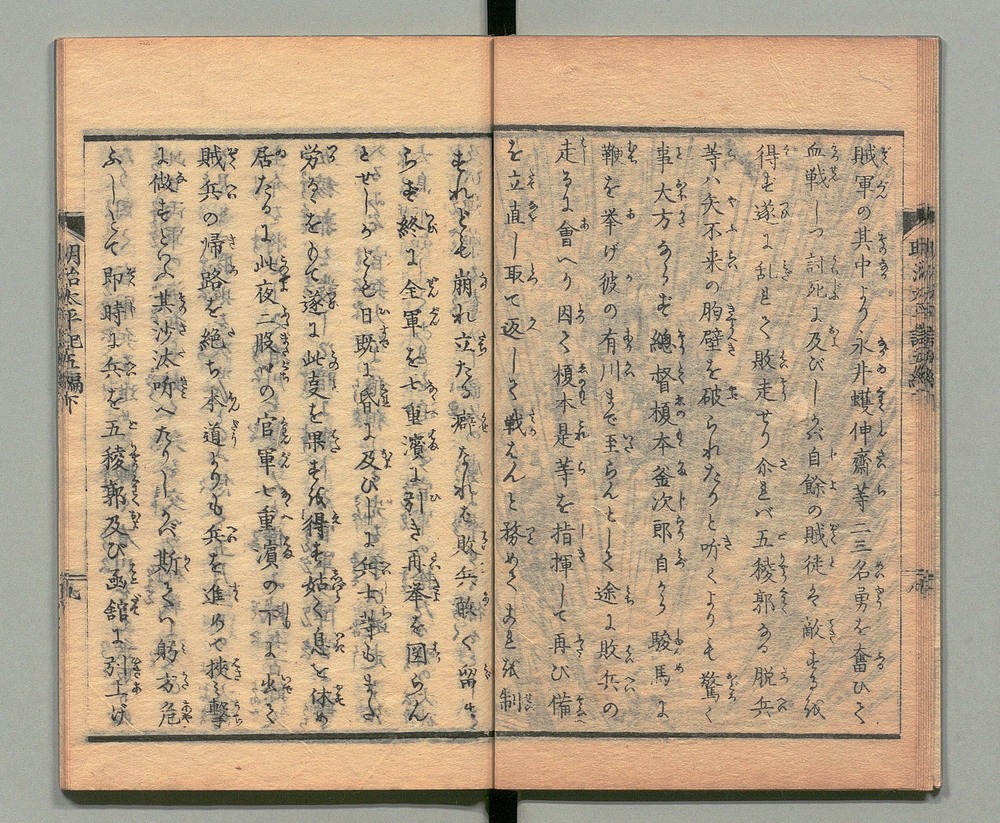 賊軍の其中より永井蠖伸齋等二三名勇を奮ひて
血戦しつ討死に及びしかバ自餘の賊徒ハ敵する
得ず遂に乱れて敗走せり介れバ五稜郭なる脱兵
等ハ矢不来の胸壁を破られたりと听くよりも驚く
事大方ならず總督榎本釜次郎自から駿馬に
鞭を挙げ彼の有川まで至らんとして途に敗兵の
走るに會へり因て榎本是等を指揮して再び備
を立直し取て返して戦はんと務めてこれを制
すれども崩れ立たる癖なれバ敗兵敢て留まらず
終に全軍を七重濱に引き再举を図らん
とせしかども日既に昏に及びしに兵士等もまた
労るゝをもて遂に此支を果すを得ず姑く息を休め
居たるに此夜二股口の官軍七重濱の下に出て
賊兵の帰路を絶ち本道よりも兵を進めて挟み撃
に做すといふ其沙汰听へたりしかバ斯てハ躬方危
ふしとて即時に兵を五稜郭及び函舘に引上げ
明治太平記五編下
九